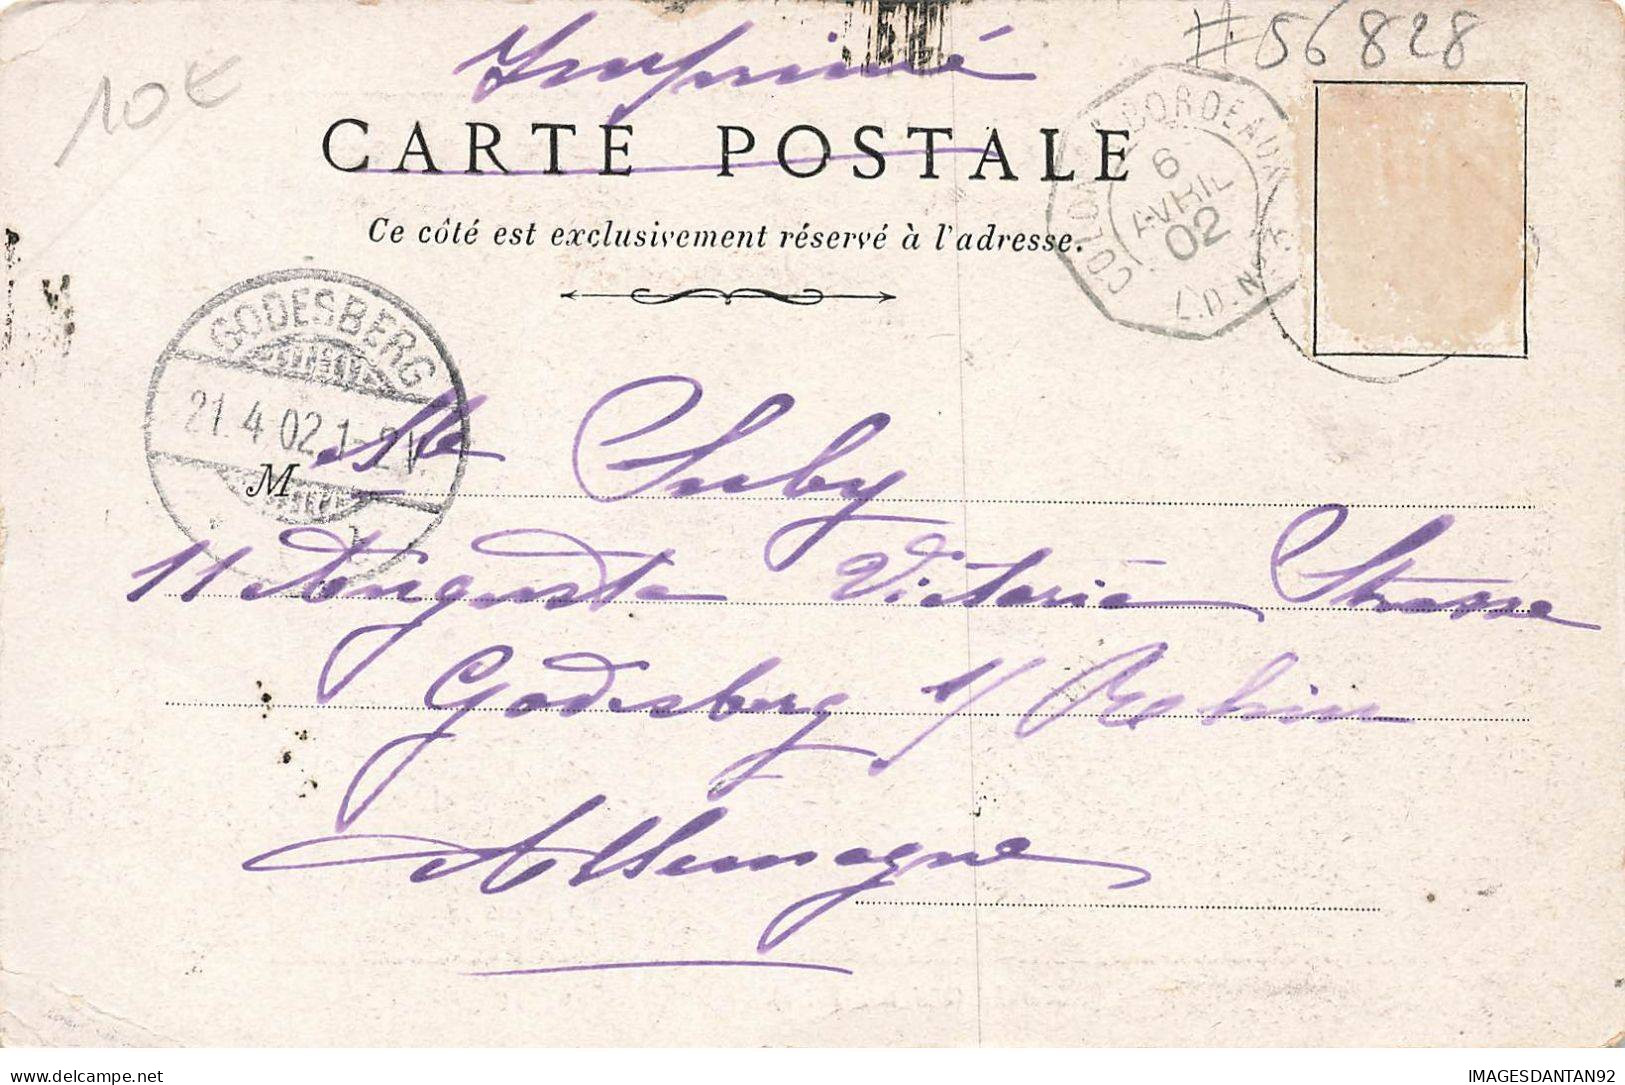 Imprimé
#56828
10€
CARTE POSTALE
Ce côté est exclusivement réservé à l'adresse.
COLON À BORDEAUX
6
AVRIL
02
L.D. N°
GODESBERG
21.4.02.1-2N.
M
Mlle Suby
11 Augusta Victoria Strasse
Godesberg s/ Rhin
Allemagne
delcampe.net
IMAGESDANTAN92